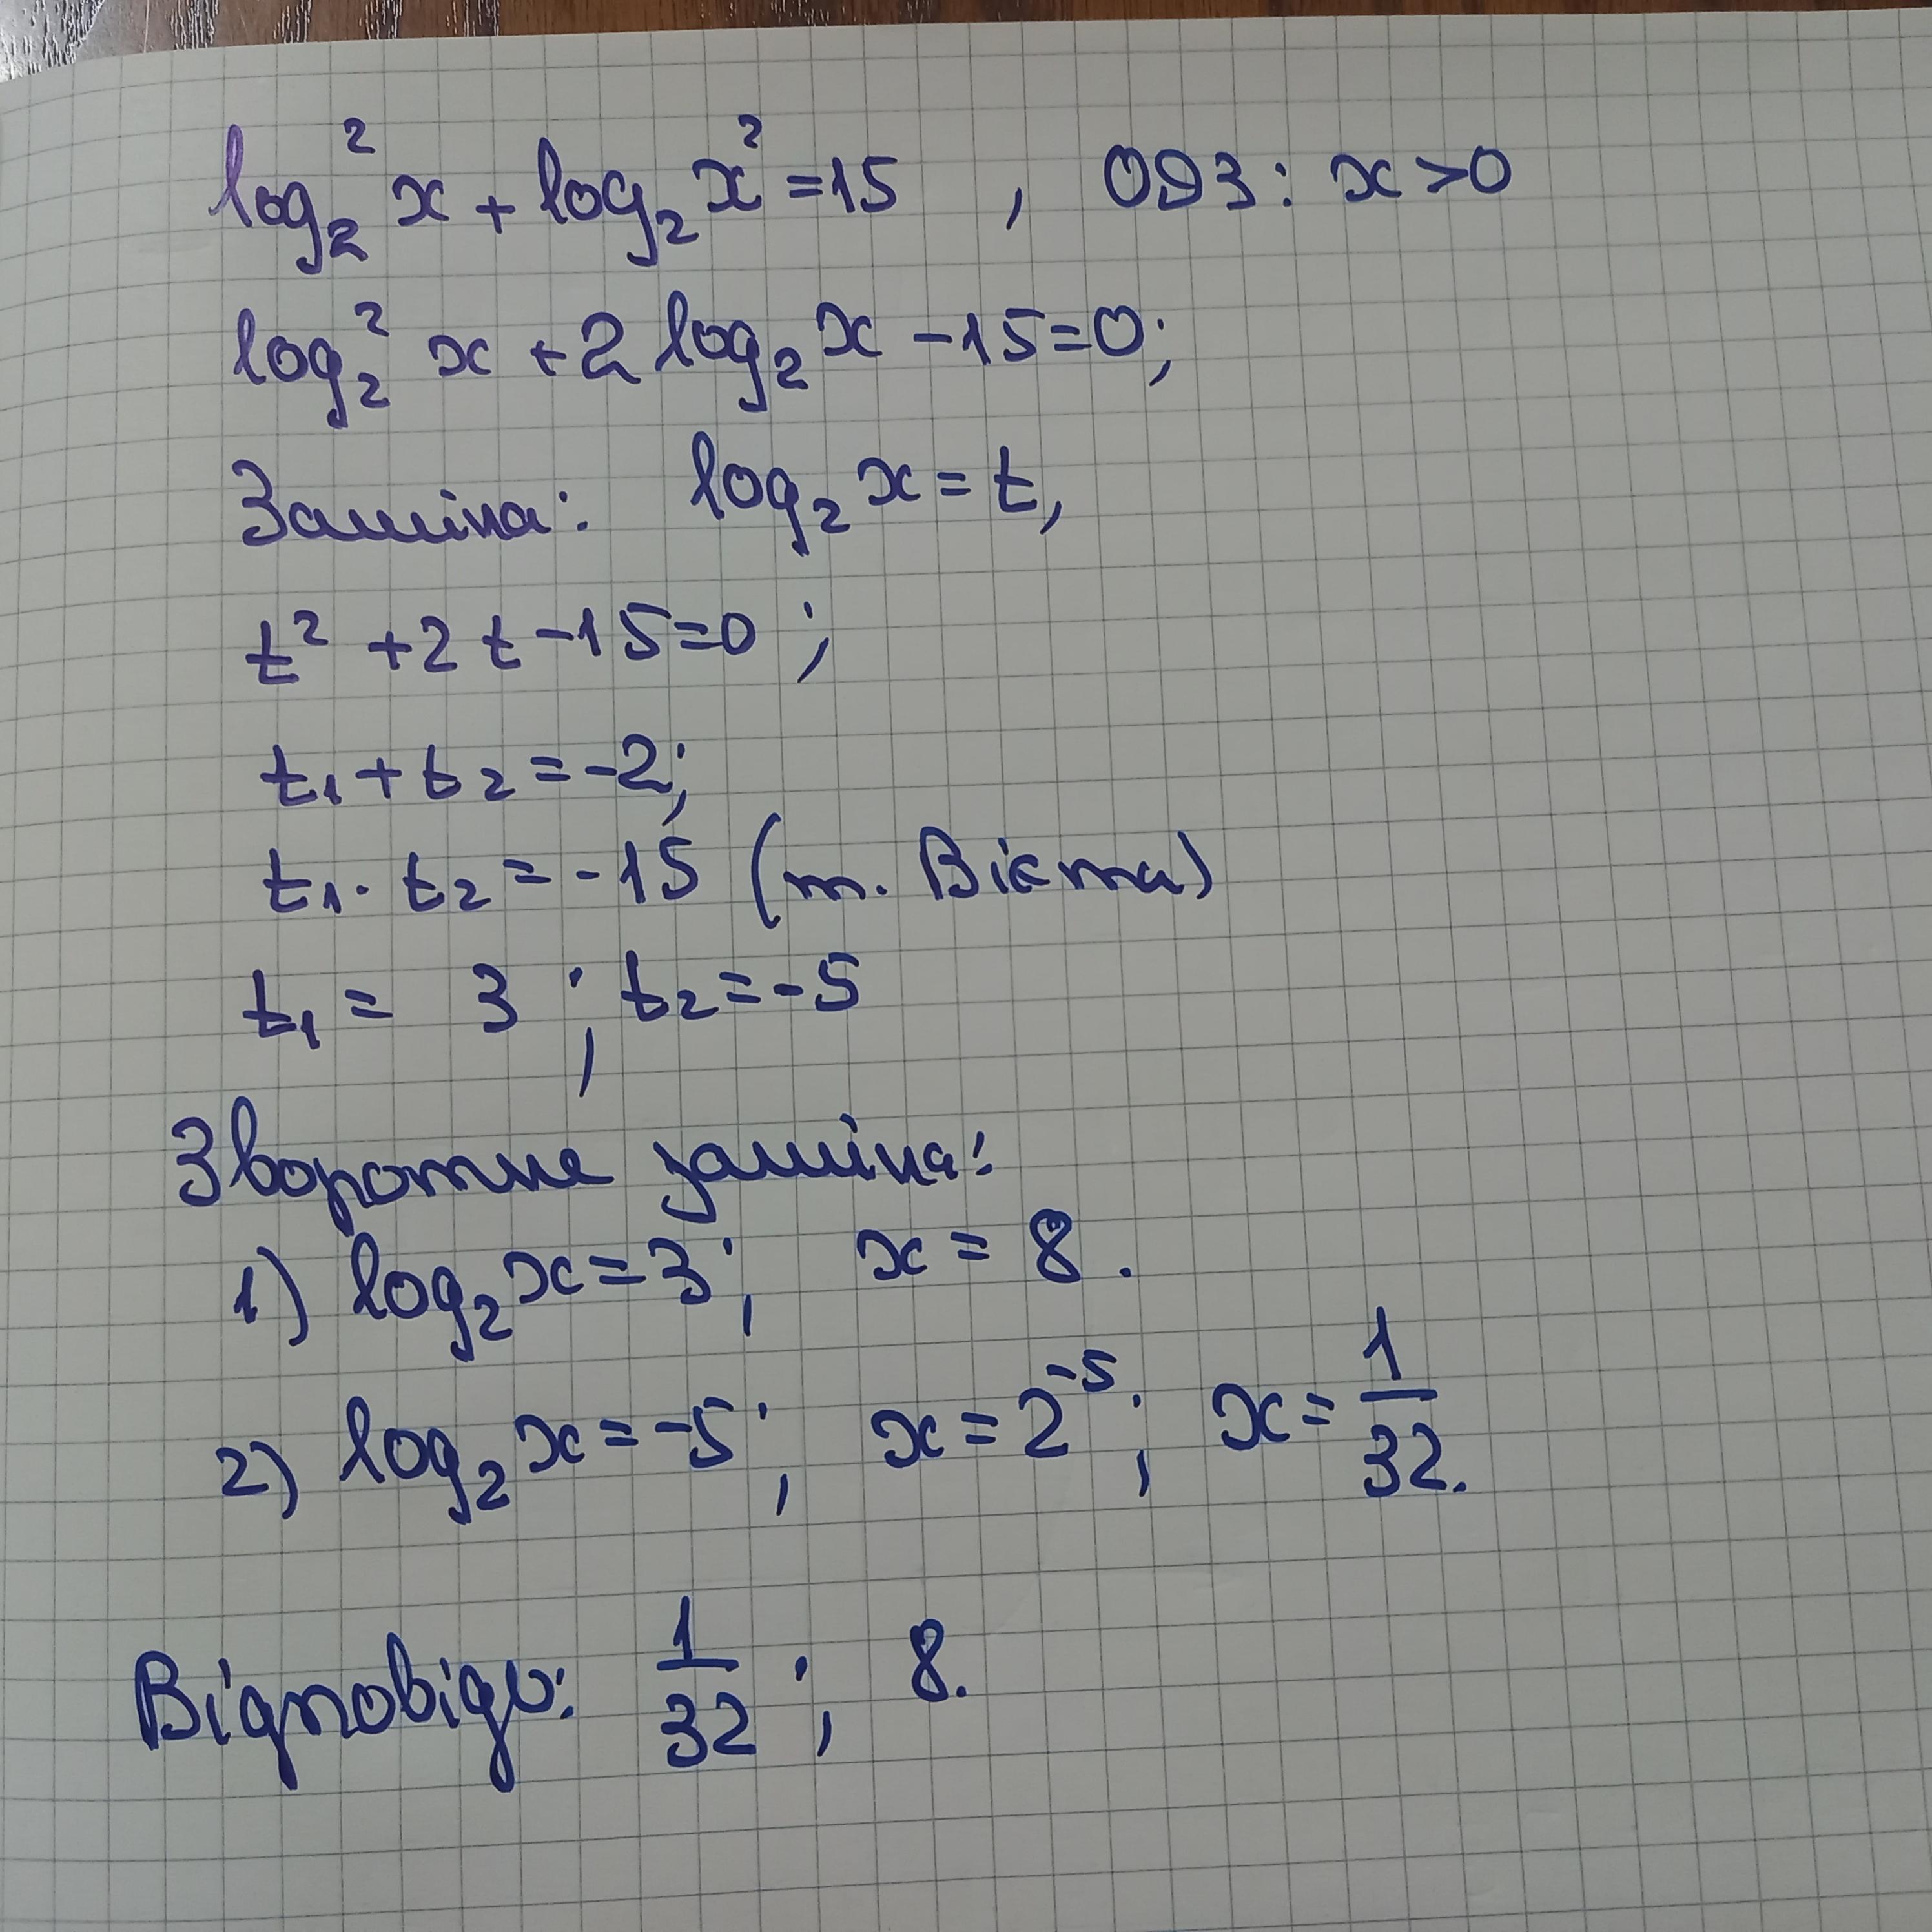 log₂² x + log₂ x² = 15 , ОДЗ: x > 0
log₂² x + 2 log₂ x - 15 = 0;
Заміна: log₂ x = t,
t² + 2t - 15 = 0 ;
t₁ + t₂ = -2;
t₁ · t₂ = -15 (т. Вієта)
t₁ = 3 ; t₂ = -5
Зворотне заміна:
1) log₂ x = 3; x = 8.
2) log₂ x = -5; x = 2⁻⁵; x = 1/32.
Відповідь: 1/32 ; 8.